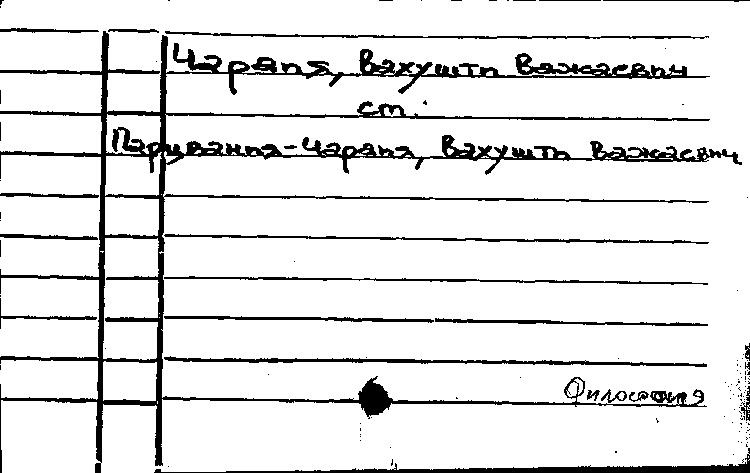 Чарапя, Вахушти Важаевич
см.
Парцвания-Чарапя, Вахушти Важаевич
Философия